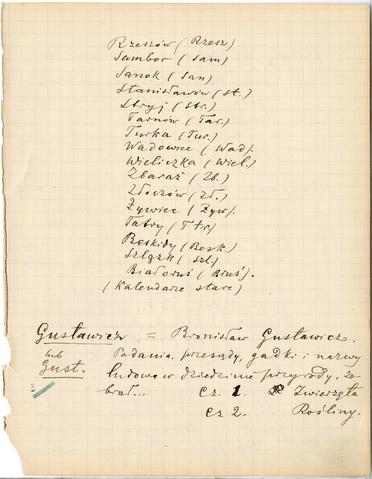 Rzeszów (Rzesz)
Sambor (Sam)
Sanok (San)
Stanisławów (St.)
Stryj (Str.)
Tarnów (Tar.)
Turka (Tur.)
Wadowice (Wad).
Wieliczka (Wiel.)
Zbaraż (Zb.)
Złoczów (Zł.)
Żywiec (Żyw).
Tatry (Ttr)
Beskidy (Besk)
Szlązk (Szl)
Białoruś (Bruś).
(Kalendarze stare)
Gustawicz = Bronisław Gustawicz.
lub Podania, przesądy, gadki i nazwy
Gust. ludowe w dziedzinie przyrody, ze-
3 brał... Cz 1. Zwierzęta
Cz 2. Rośliny.